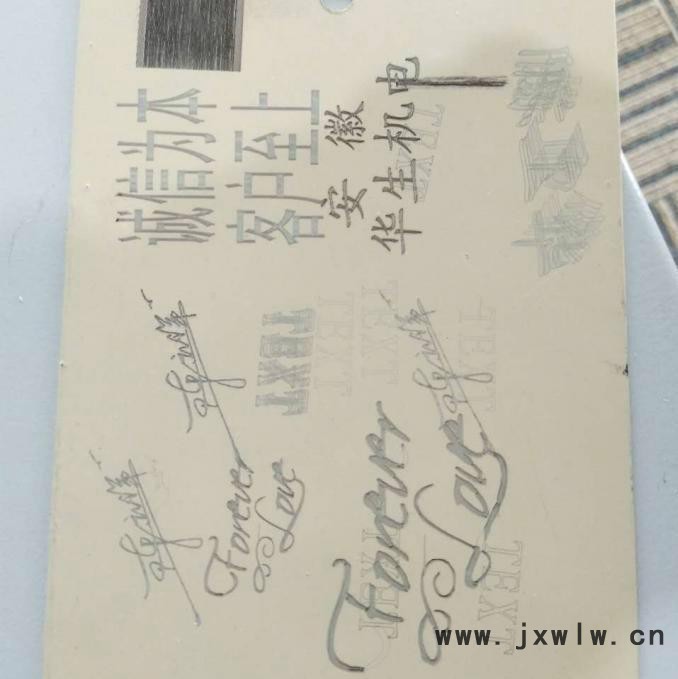 诚信为本
客户至上
安徽
华生机电
TEXT
TEXT
TEXT
TEXT
TEXT
Forever
Love
Forever
Love
TEXT
TEXT
www.jxwlw.cn